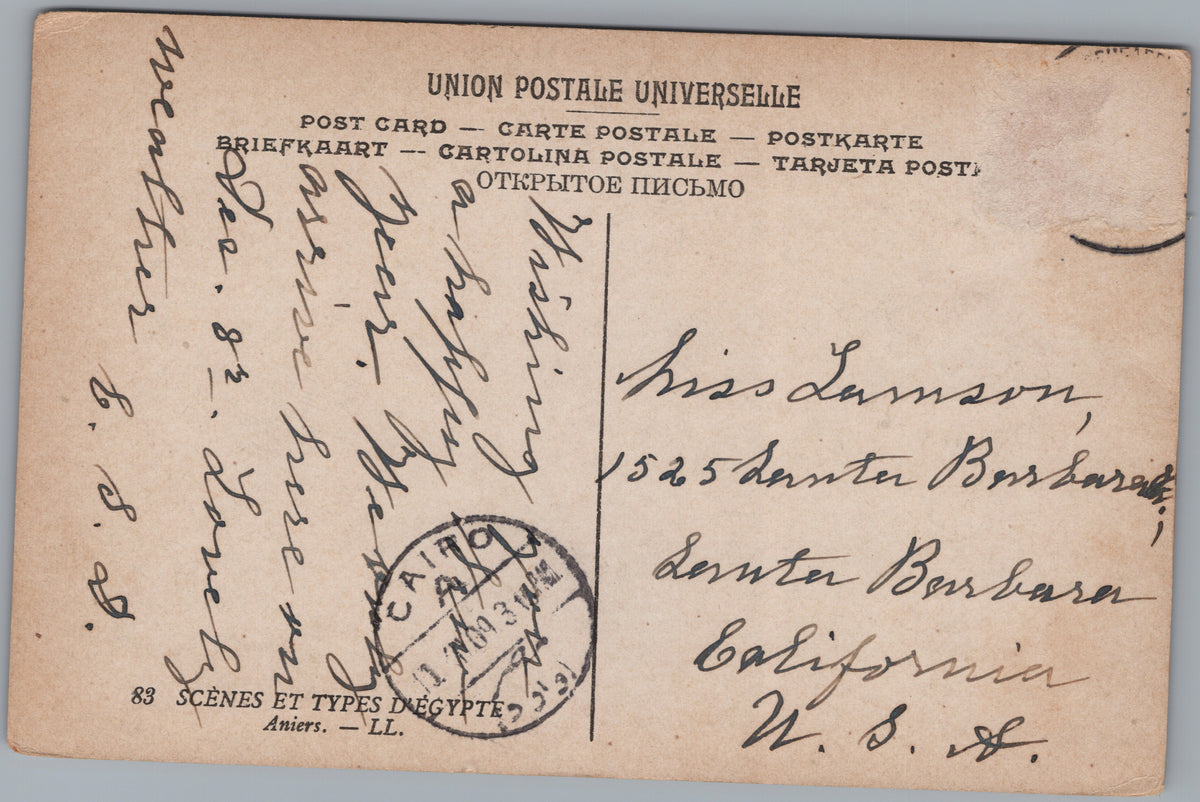 UNION POSTALE UNIVERSELLE
POST CARD — CARTE POSTALE — POSTKARTE
BRIEFKAART — CARTOLINA POSTALE — TARJETA POST
ОТКРЫТОЕ ПИСЬМО
Wishing you
a happy New
Year.
arrive here on
Dec. 8
Lovely
weather
E. S. D.
Miss Lamson,
1525 Santa Barbara St.,
Santa Barbara
California
U. S. A.
CAIRO
83 SCÈNES ET TYPES D'ÉGYPTE
Aniers. — LL.